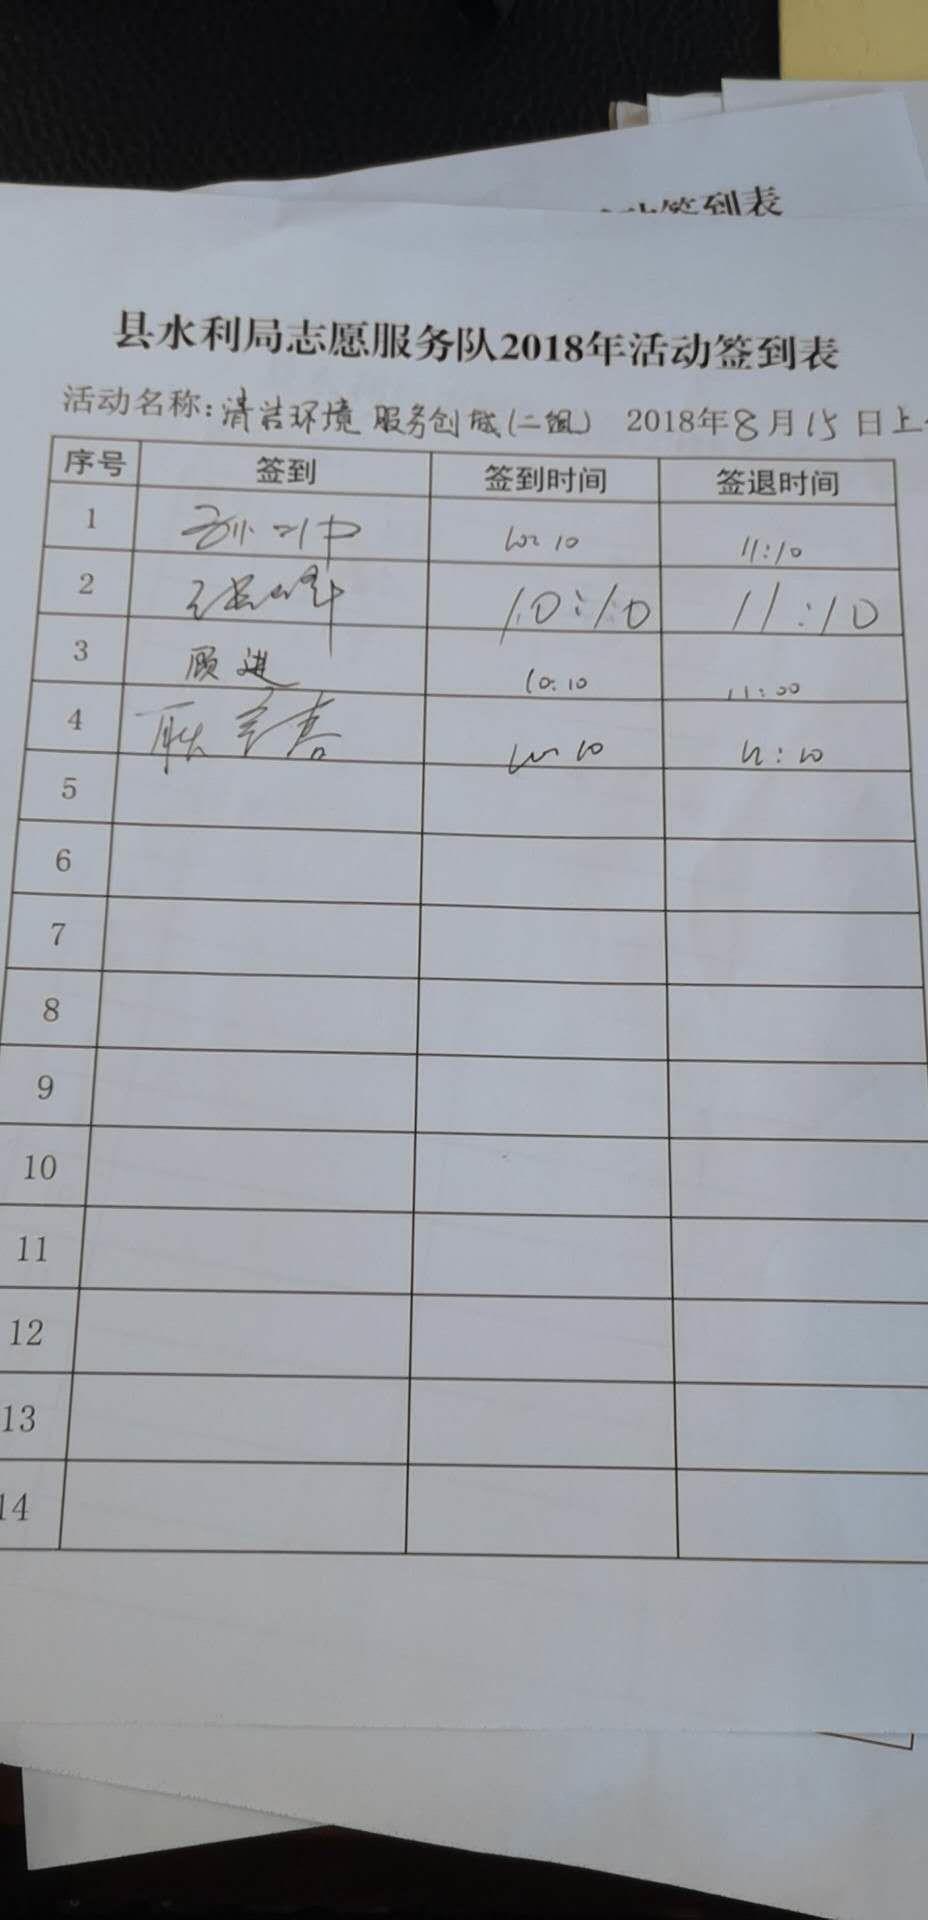 签到表
县水利局志愿服务队2018年活动签到表
活动名称:清洁环境 服务创城(二组) 2018年8月15日上
序号 签到 签到时间 签退时间
1 10:10 11:10
2 张峰 10:10 11:10
3 顾进 10:10 11:00
4 10:10 11:10
5
6
7
8
9
10
11
12
13
14